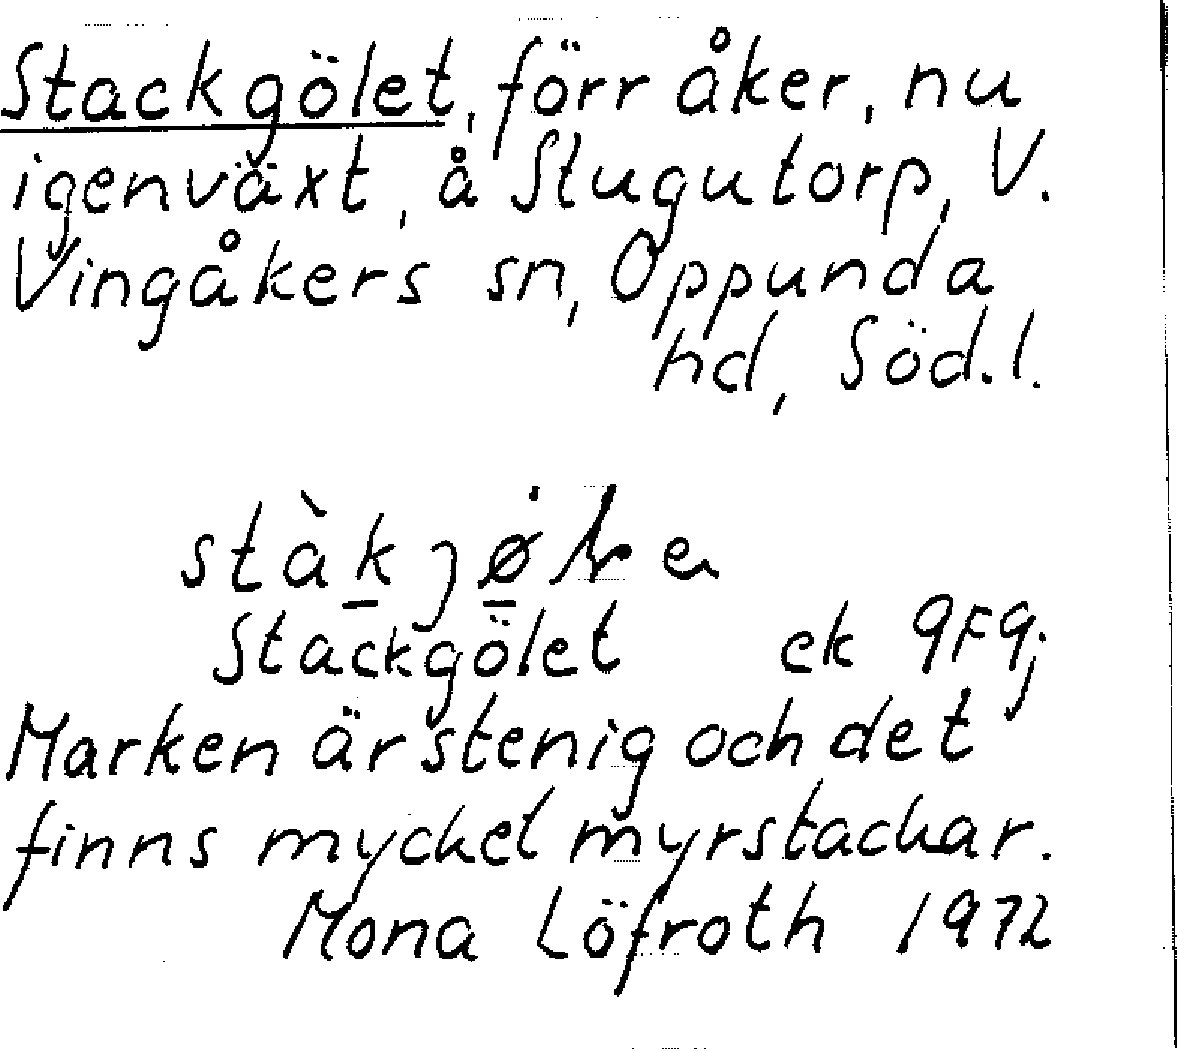 Stackgölet, förr åker, nu
igenväxt, å Slugutorp, V.
Vingåkers sn, Oppunda
hd, Söd.l.
Stackgölet ek 9F9j
Marken är stenig och det
finns mycket myrstackar.
Mona Löfroth 1972